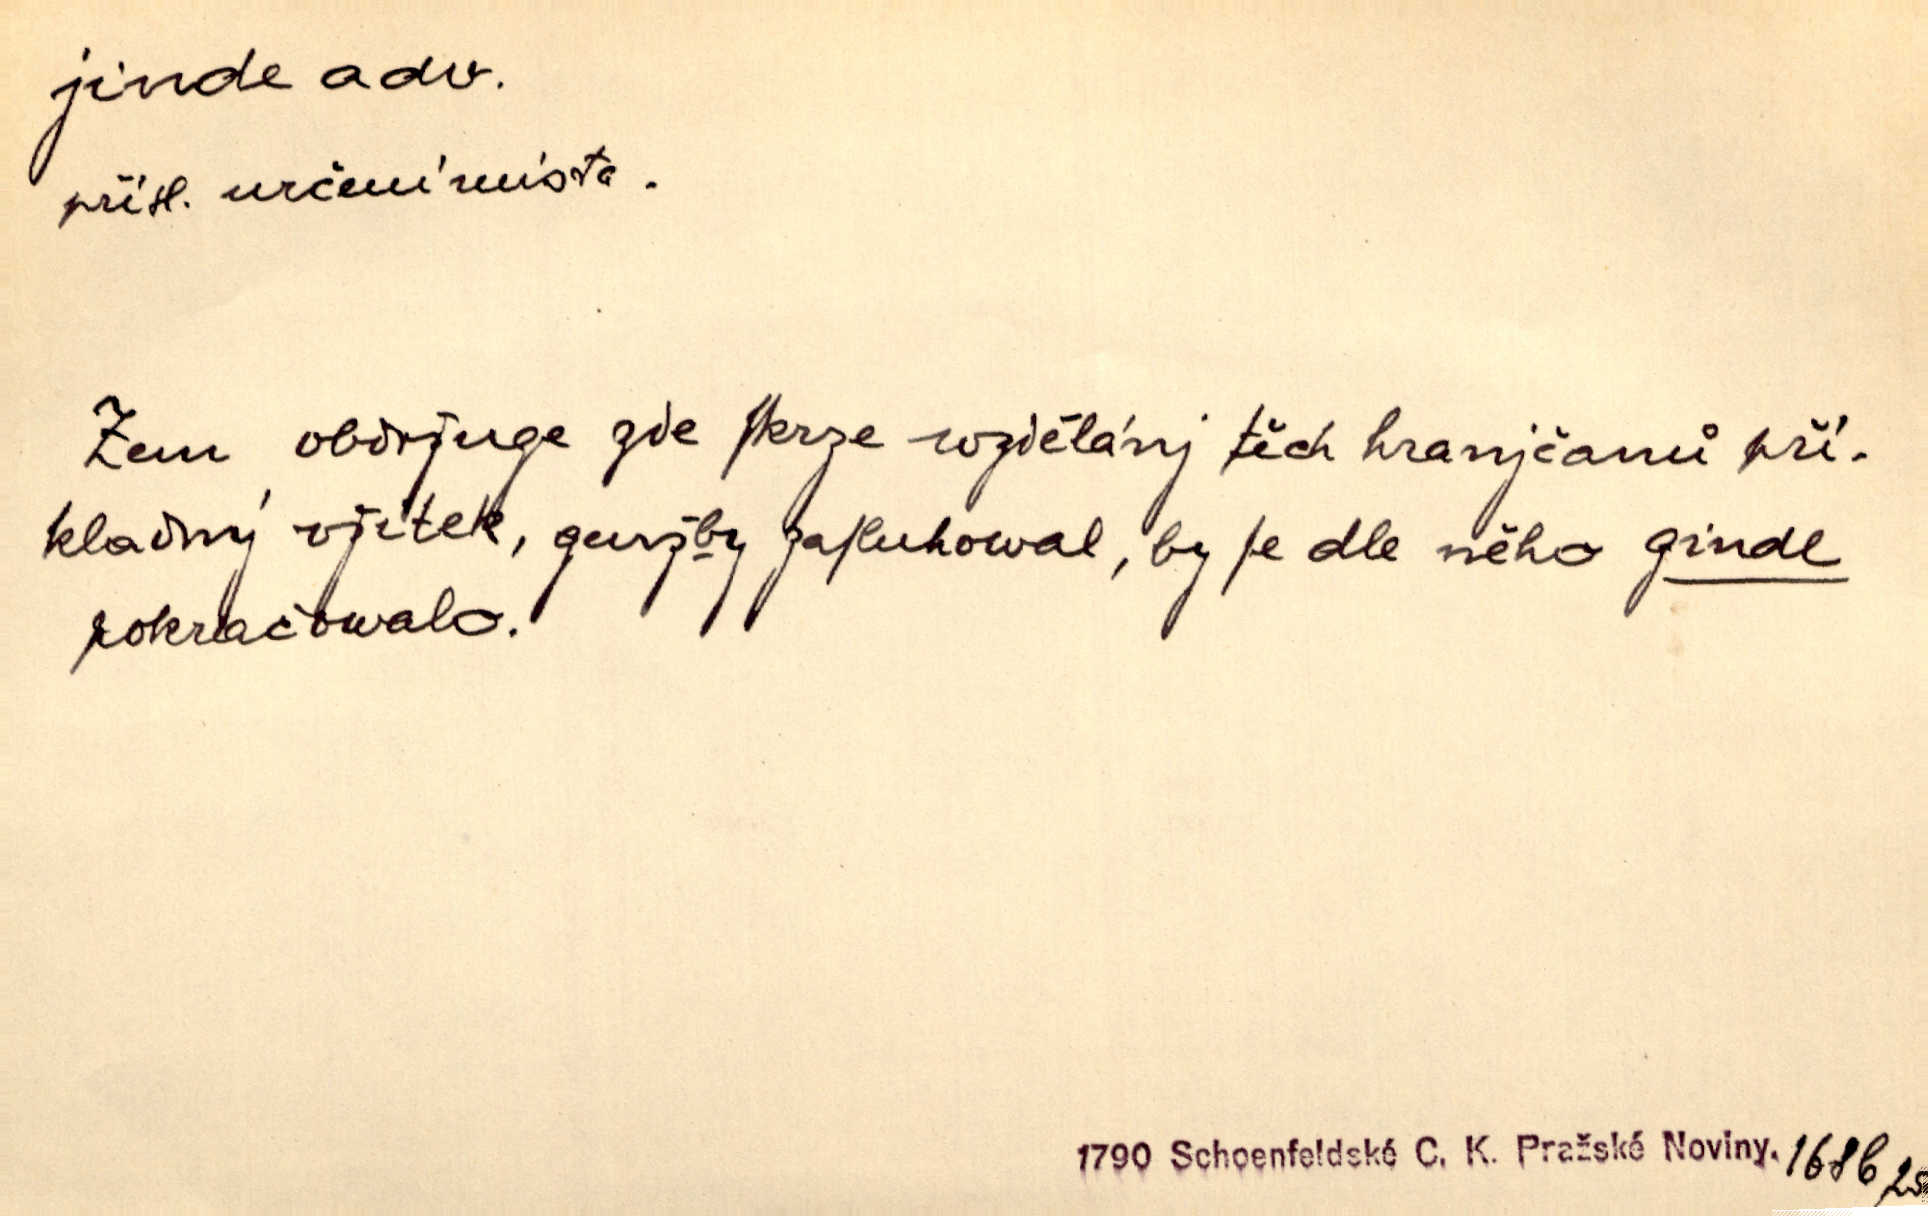 jinde adv.
přísl. určení místa.
Zem obdržuge zde ſkrze wzdělánj těch hranjčanů pří-
kladný vžitek, genžby zaſluhowal, by ſe dle něho ginde
pokračowalo.
1790 Schoenfeldské C. K. Pražské Noviny. 168b 25